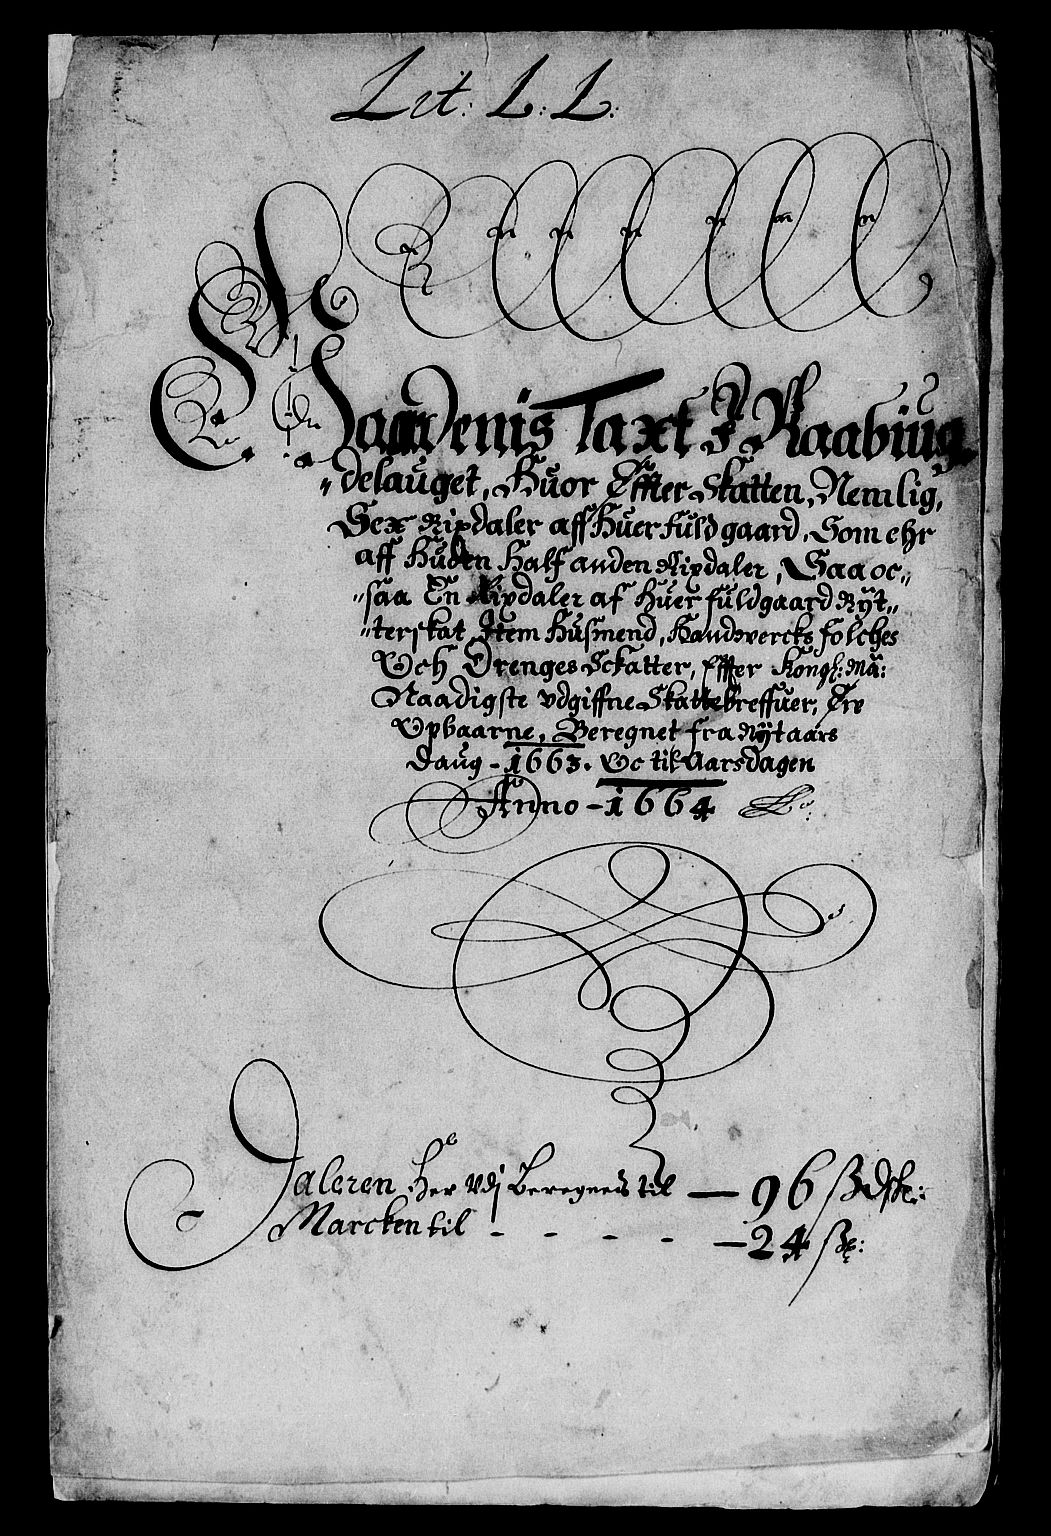 Lit: L: L:
Gaardenis Taxt I Raabiug
delauget, Huor Effter Skatten, Nemlig,
Sex Rixdaler aff Huer fuld gaard, Som ehr
aff Huden Half anden Rixdaler, Saa oc„
„saa En Rixdaler af Huer fuldgaard Rÿt„
„terskat, Item Husmend, Handwercks folches
Och Drenges Sckatter, Effter Kongl: Ma:
Naadigste vdgiffne Skattebreffuer, Ere
Opbaarne, Beregnet fra Nÿtaars
Daug - 1663. Oc til Aarsdagen
Anno - 1664
Daleren Her vdj Beregnes til — 96 ß
Marcken til - - - - — 24 ß